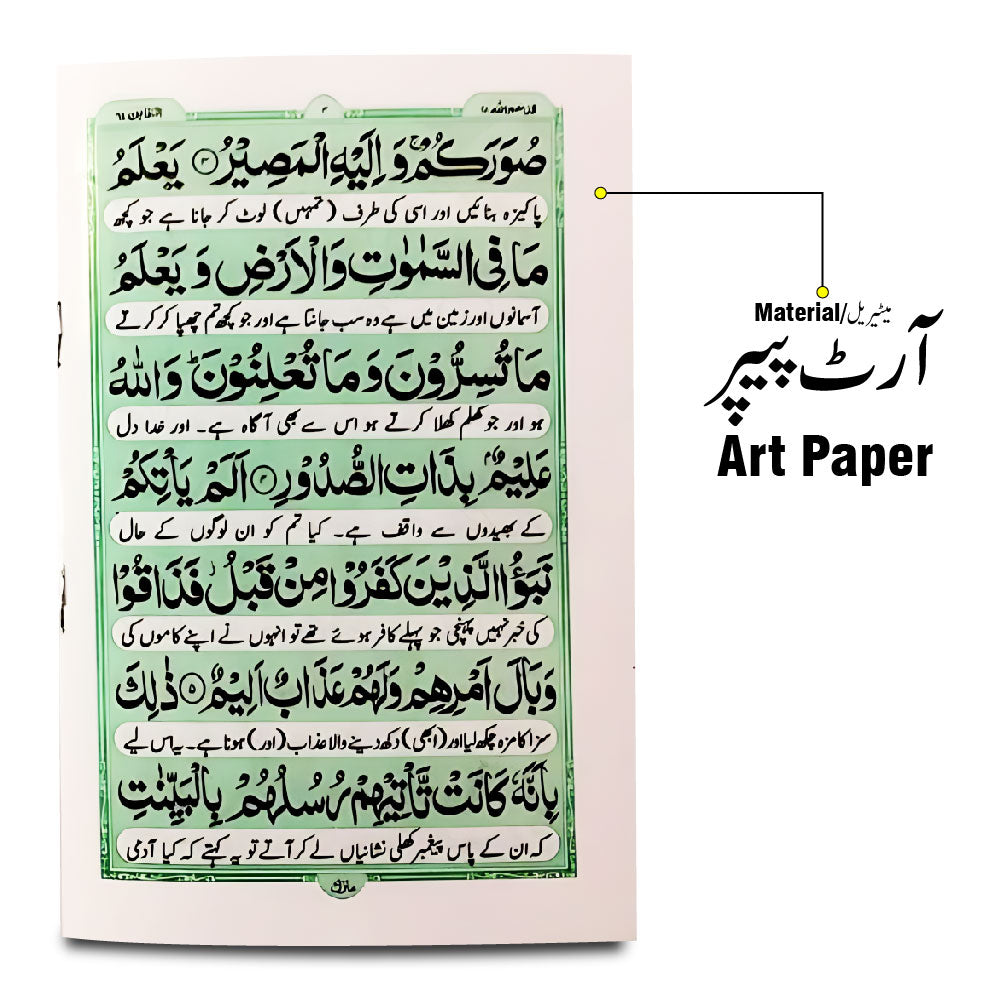 التغابن ٦٤
قد سمع الله ٢٨
صُوَرَكُمْ ۚ وَ اِلَيْهِ الْمَصِيْرُ ۝۳ يَعْلَمُ
پاکیزہ بنائیں اور اسی کی طرف (تمہیں) لوٹ کر جانا ہے جو کچھ
مَا فِي السَّمٰوٰتِ وَالْاَرْضِ وَ يَعْلَمُ
آسمانوں اور زمین میں ہے وہ سب جانتا ہے اور جو کچھ تم چھپا کر کرتے
مَا تُسِرُّوْنَ وَ مَا تُعْلِنُوْنَ ؕ وَاللّٰهُ
ہو اور جو کھلم کھلا کرتے ہو اس سے بھی آگاہ ہے۔ اور خدا دل
عَلِيْمٌۢ بِذَاتِ الصُّدُوْرِ ۝۴ اَلَمْ يَاْتِكُمْ
کے بھیدوں سے واقف ہے۔ کیا تم کو ان لوگوں کے حال
نَبَؤُا الَّذِيْنَ كَفَرُوْا مِنْ قَبْلُ ؗ فَذَاقُوْا
کی خبر نہیں پہنچی جو پہلے کافر ہوئے تھے تو انہوں نے اپنے کاموں کی
وَبَالَ اَمْرِهِمْ وَلَهُمْ عَذَابٌ اَلِيْمٌ ۝۵ ذٰلِكَ
سزا کا مزہ چکھ لیا اور (ابھی) دکھ دینے والا عذاب (اور) ہونا ہے۔ یہ اس لیے
بِاَنَّهٗ كَانَتْ تَّاْتِيْهِمْ رُسُلُهُمْ بِالْبَيِّنٰتِ
کہ ان کے پاس پیغمبر کھلی نشانیاں لے کر آتے تو یہ کہتے کہ کیا آدمی
منزل
Material/میٹیریل
آرٹ پیپر
Art Paper